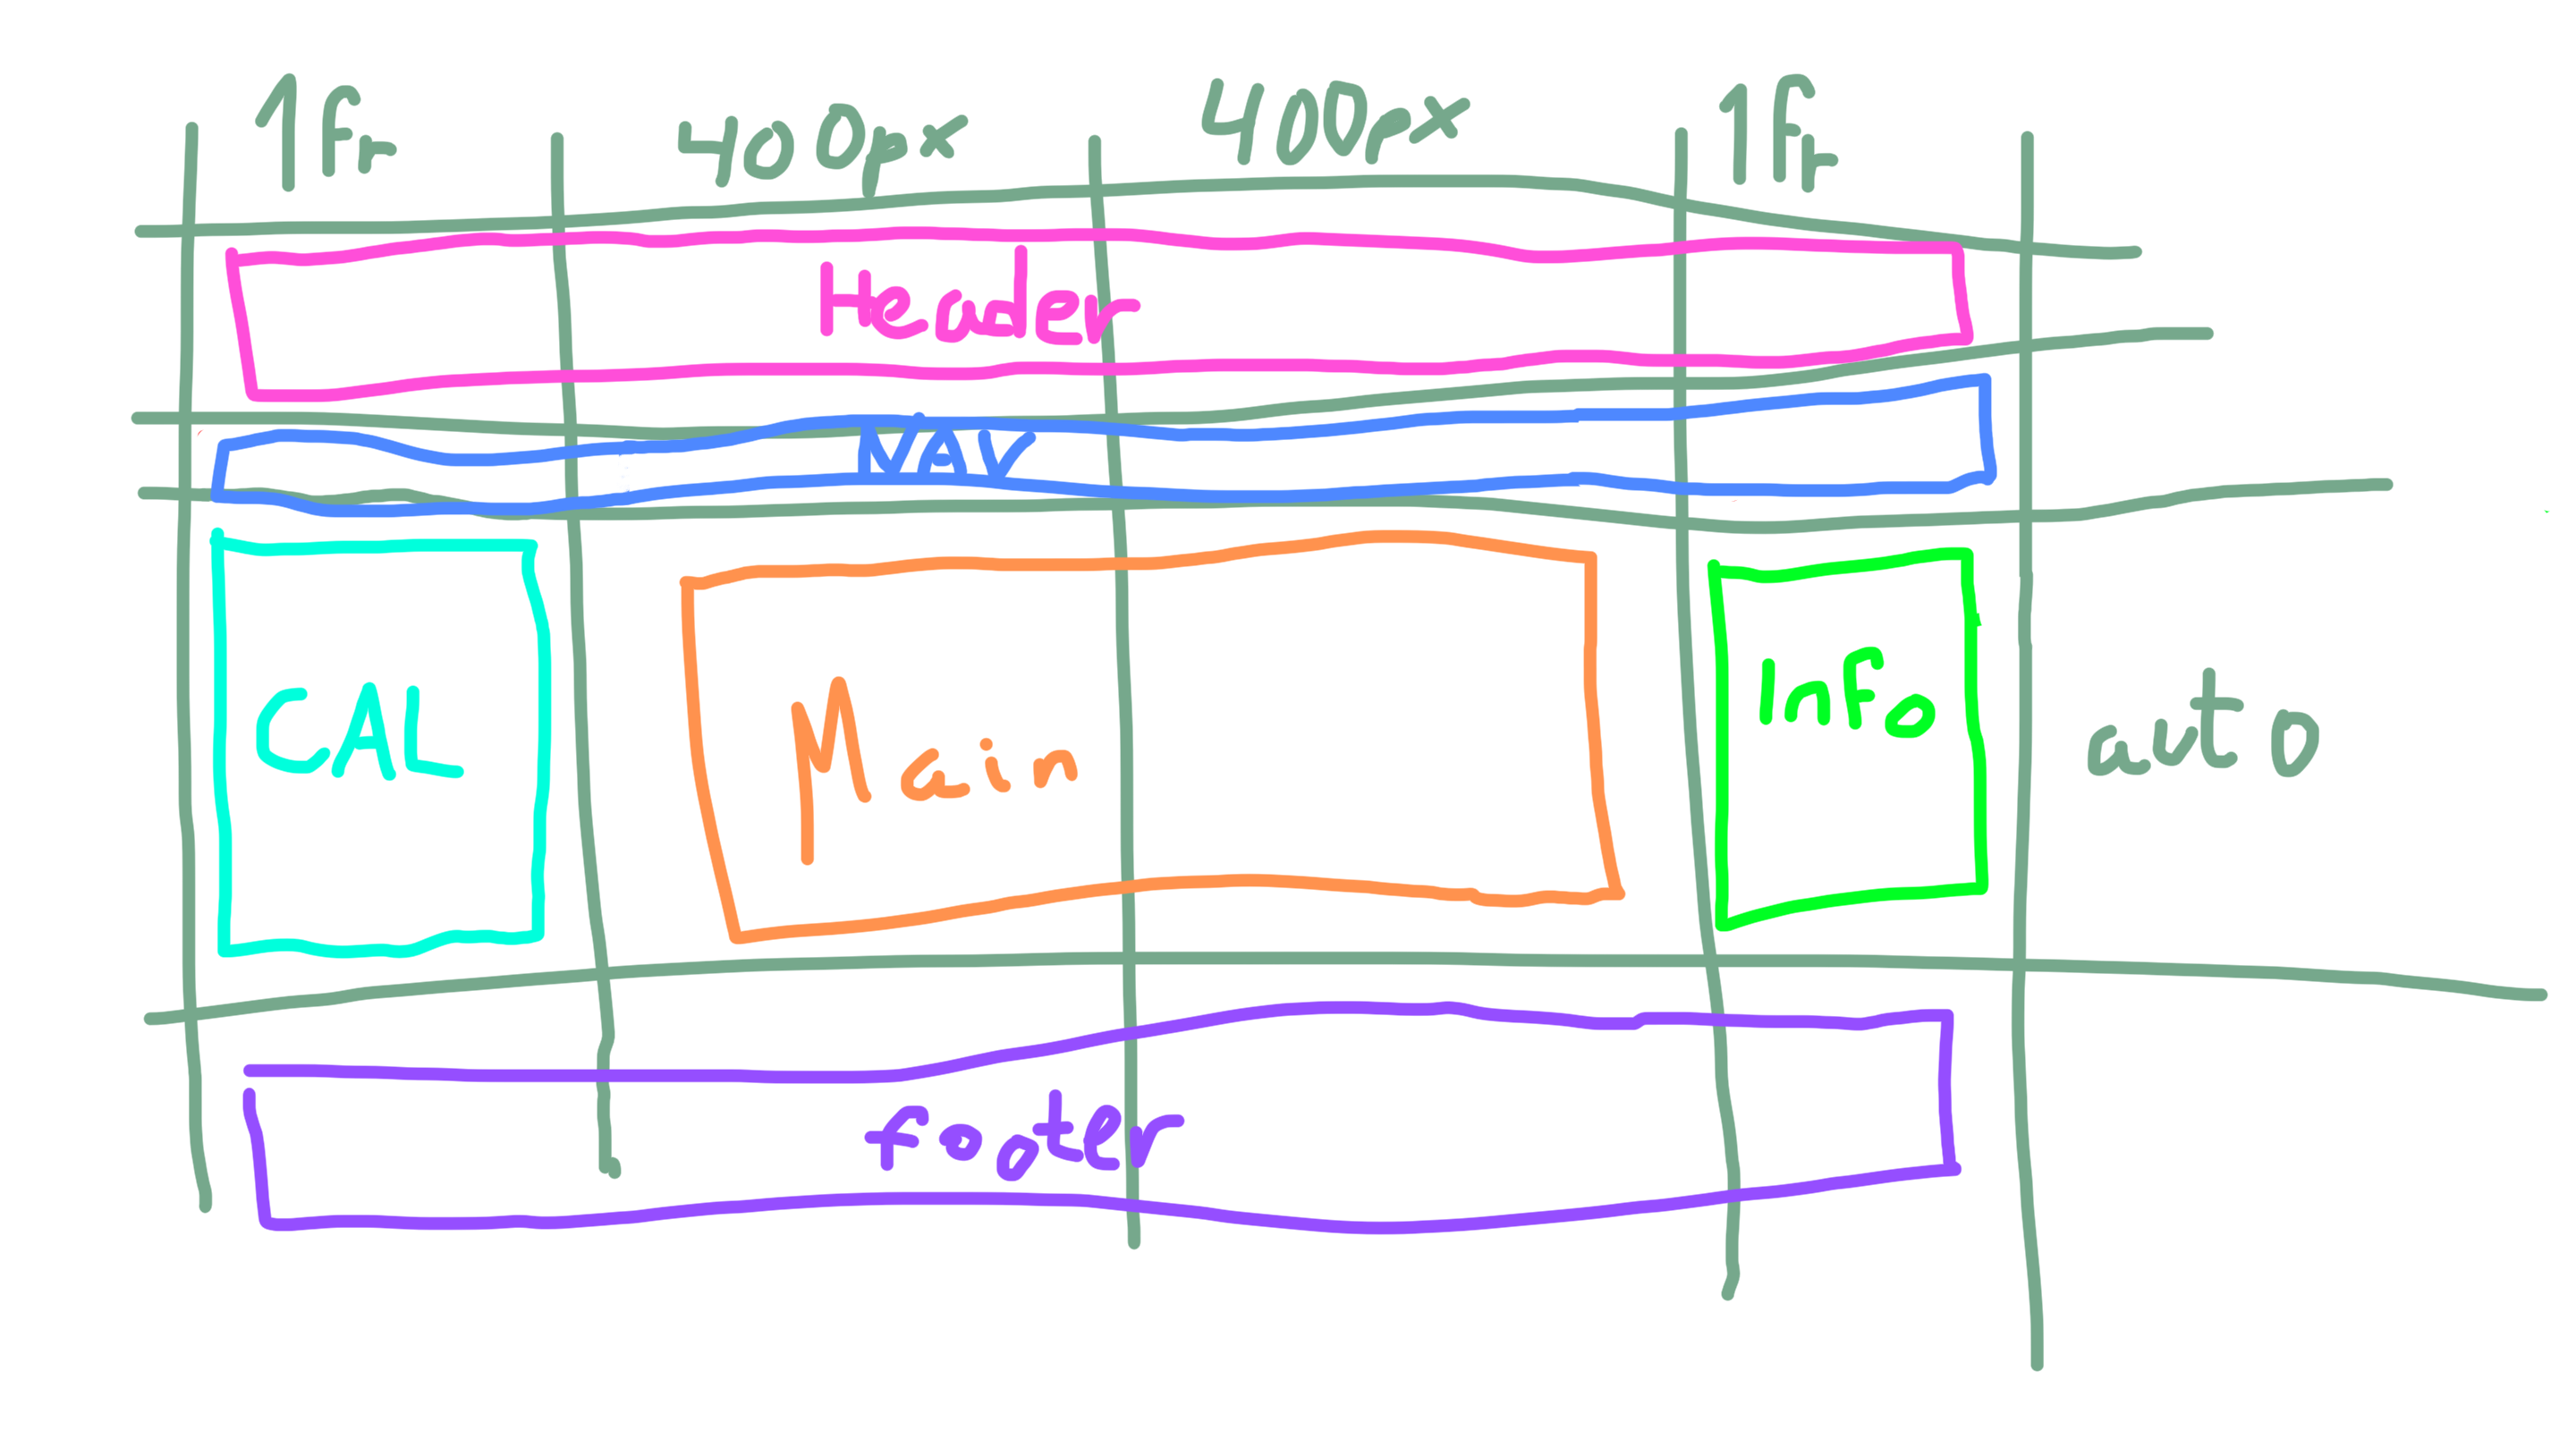 1fr 400px 400px 1fr
Header
NAV
CAL Main Info auto
footer